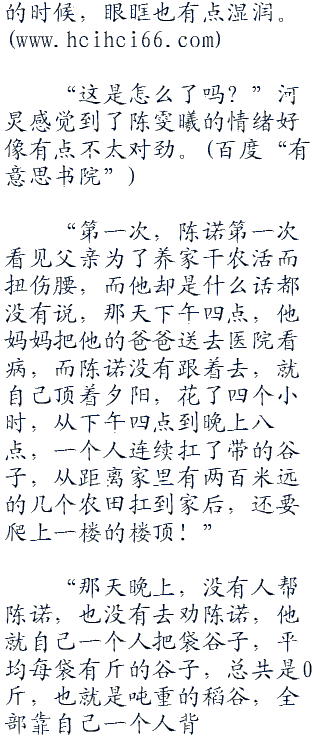 的时候，眼眶也有点湿润。
(www.hcihci66.com)
“这是怎么了吗？”河
灵感觉到了陈雯曦的情绪好
像有点不太对劲。(百度“有
意思书院”)
“第一次，陈诺第一次
看见父亲为了养家干农活而
扭伤腰，而他却是什么话都
没有说，那天下午四点，他
妈妈把他的爸爸送去医院看
病，而陈诺没有跟着去，就
自己顶着夕阳，花了四个小
时，从下午四点到晚上八
点，一个人连续扛了带的谷
子，从距离家里有两百米远
的几个农田扛到家后，还要
爬上一楼的楼顶！”
“那天晚上，没有人帮
陈诺，也没有去劝陈诺，他
就自己一个人把袋谷子，平
均每袋有斤的谷子，总共是0
斤，也就是吨重的稻谷，全
部靠自己一个人背